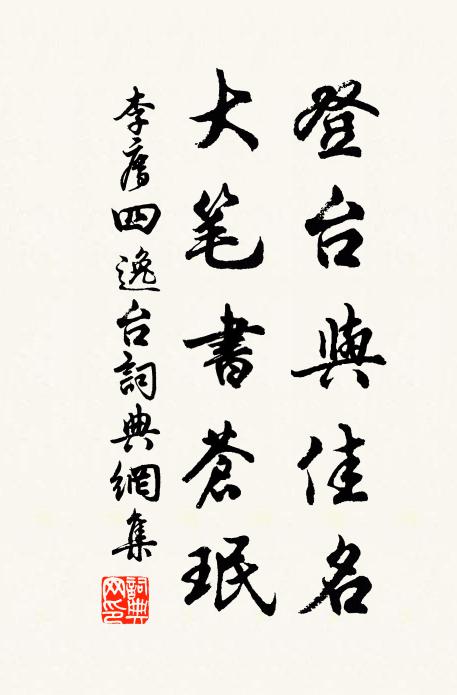 登台與佳名
大笔書蒼珉
李廌四逸台詞典網集
詞典
网印